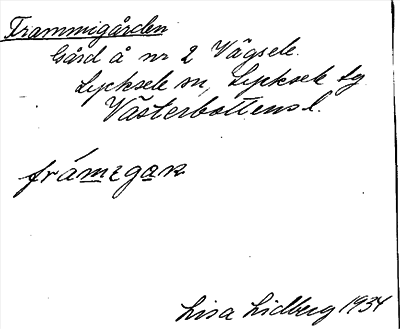 Frammigården
Gård å nr 2 Vägsele
Lycksele sn, Lycksele lg
Västerbottens l.
frámigaɳ
Lisa Lidberg 1934